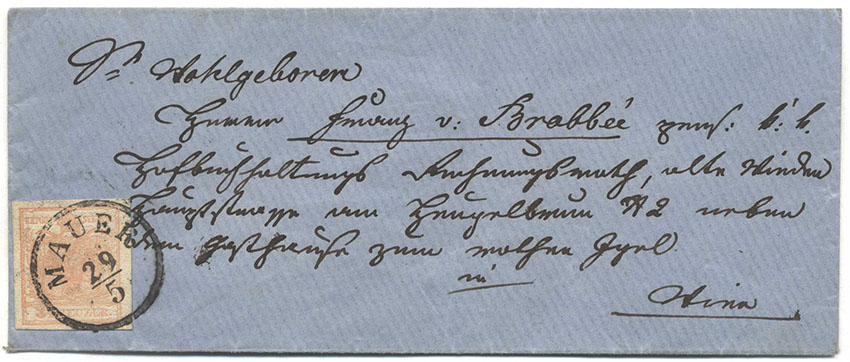 Sr Wohlgeboren
Herrn Franz v: Brabbée pens: k: k.
Hofbuchhaltungs Rechnungsrath, alte Wieden
Hauptstrasse am Heugelbrun N 2 neben
dem Gasthause zum rothen Igel
in
Wien
MAUER
29/5